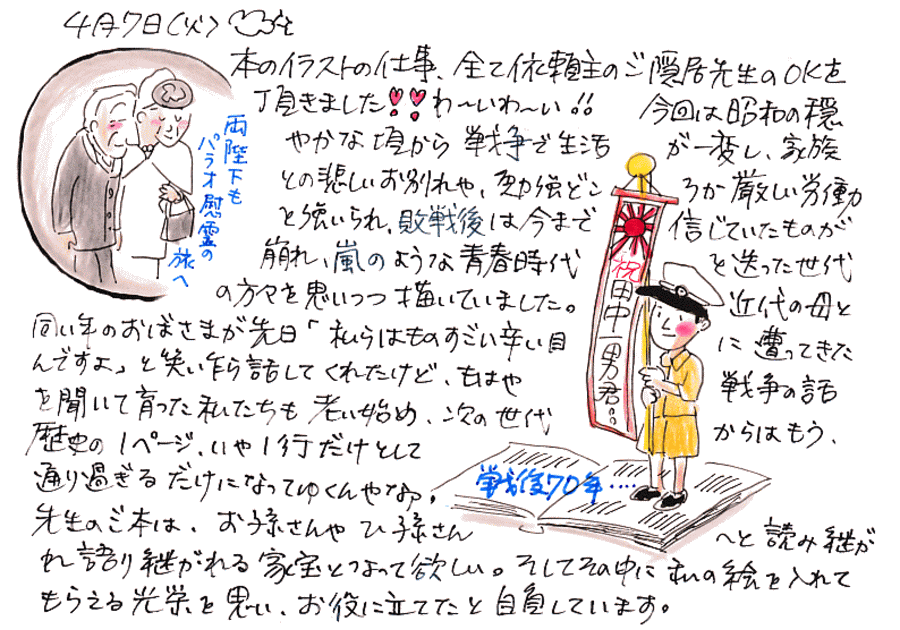 4月7日(火)
本のイラストの仕事、全て依頼主のご隠居先生のOKを
頂きました❣❣わ〜いわ〜い!! 今回は昭和の穏
やかな頃から戦争で生活が一変し、家族
との悲しいお別れや、勉強どころか厳しい労働
を強いられ、敗戦後は今まで信じていたものが
崩れ、嵐のような青春時代を送った世代
の方々を思いつつ描いていました。近代の母と
同い年のおばさまが先日「私らはものすごい辛い目に遭ってきた
んですよ」と笑い乍ら話してくれたけど、もはや戦争の話
を聞いて育った私たちも老い始め、次の世代からはもう、
歴史の1ページ、いや1行だけとして
通り過ぎるだけになってゆくんやなぁ。
先生のご本は、お孫さんやひ孫さんへと読み継が
れ語り継がれる家宝となって欲しい。そしてその中に私の絵を入れて
もらえる光栄を思い、お役に立てたと自負しています。
両陛下も
パラオ慰霊の
旅へ
祝田中一男君
戦後70年‥‥